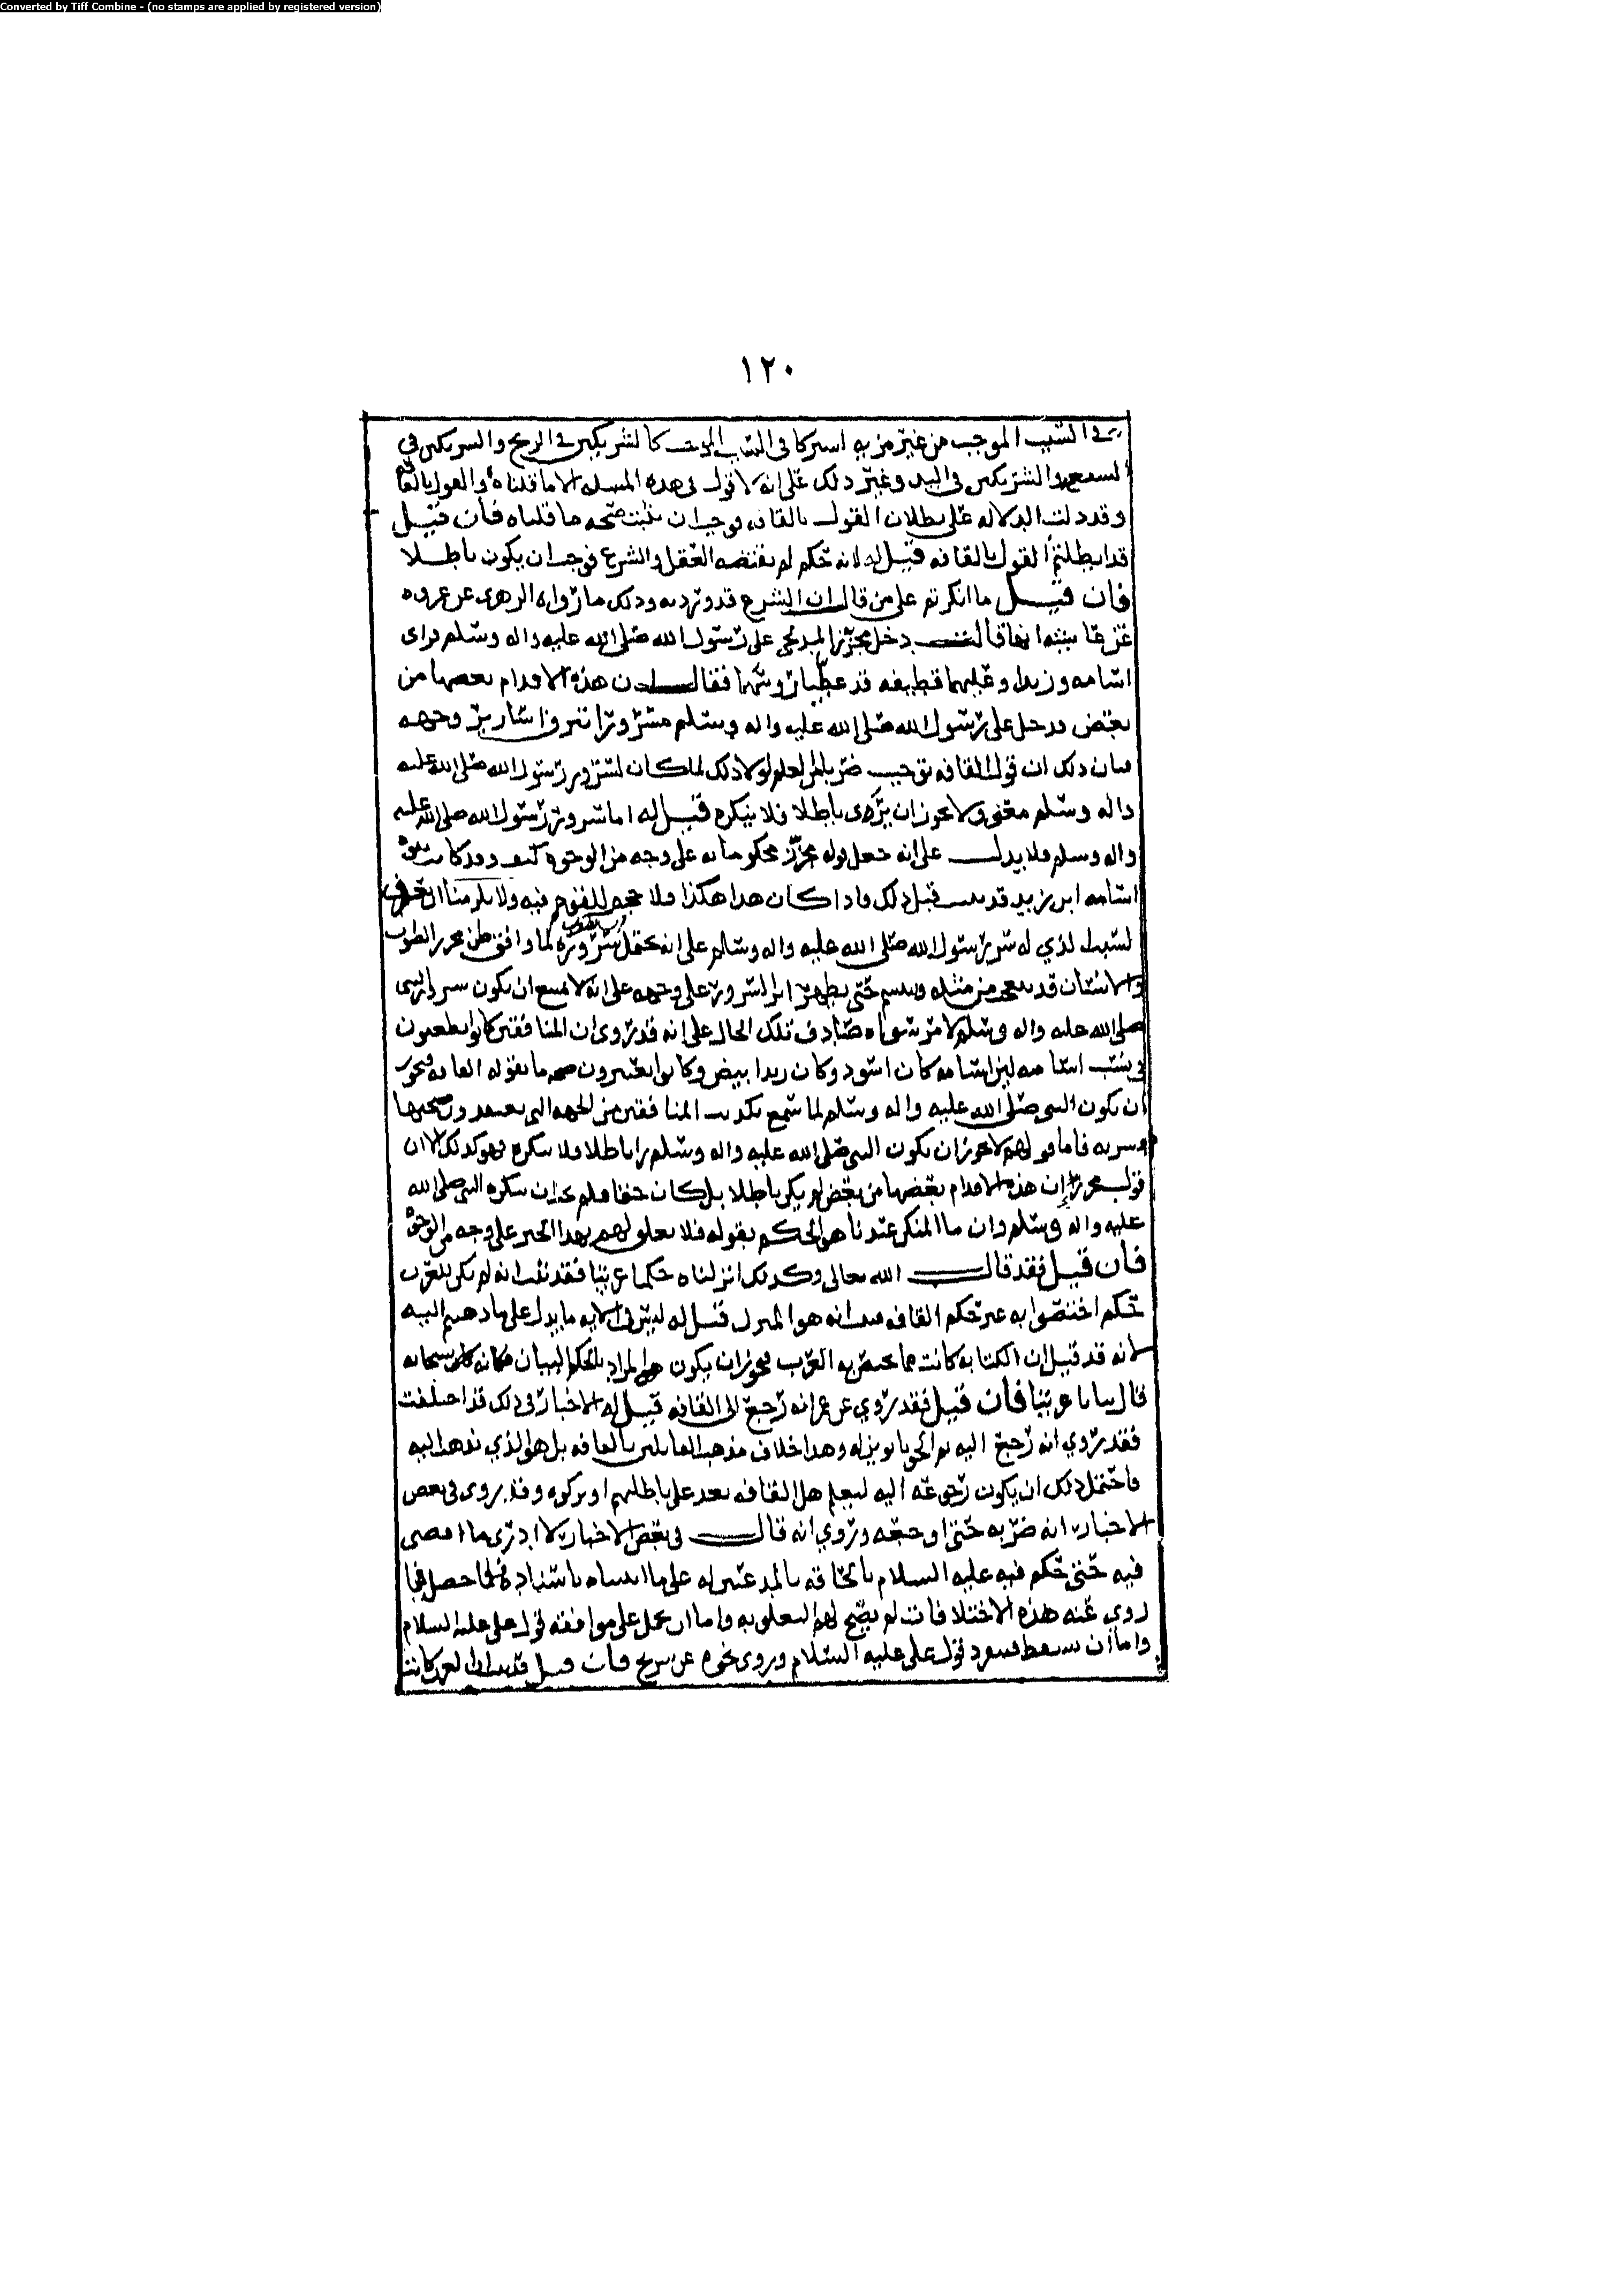 Converted by Tiff Combine - (no stamps are applied by registered version)
١٢٠
في السبب الموجب من غير مزيه اشتركا في السبب كالشريكين في الربح والشريكين في
السبع والشريكين في اليد وغير ذلك على انه لا قول في هذه المسله الا ما قلناه والقول بالقافه
وقد دلت الدلاله على بطلان القول بالقافه فوجب ان يثبت صحه ما قلناه فان قيل
قد ابطلتم القول بالقافه قيل له لانه حكم لم يقتضه العقل والشرع فوجب ان يكون باطلا
فان قيل ما انكرتم على من قال ان الشرع قد ورد به وذلك ما رواه الزهرى عن عروه
عن عايشه انها قالت دخل مجزز المدلجي على رسول الله صلى الله عليه واله وسلم فراى
اسامه وزيدا وعليهما قطيفه قد غطيا روسهما فقال ان هذه الاقدام بعضها من
بعض فدخل على رسول الله صلى الله عليه واله وسلم مسرورا تبرق اسارير وجهه
فبان ذلك ان قول القافه توجب ضربا من العلم لولا ذلك لما كان لسرور رسول الله صلى الله عليه
واله وسلم معنى ولا يجوز ان يرى باطلا فلا ينكره قيل له اما سرور رسول الله صلى الله عليه
واله وسلم فلا يدل على انه جعل قول مجزز محكوما به على وجه من الوجوه كيف وقد كانت بنوة
اسامه ابن زيد قد ثبتت قبل ذلك واذا كان هذا هكذا فلا حجه للقوم فيه ولا يلزمنا ان نعرف
السبب الذي له سر رسول الله صلى الله عليه واله وسلم على انه يحتمل سروره لما وافق ظن مجزز
والانسان قد يعجب من مثله ويبتسم حتى يظهر اثر السرور على وجهه على انه لا يمتنع ان يكون سرور النبي
صلى الله عليه واله وسلم لامر سواه صادف تلك الحال على انه قد روى ان المنافقين كانوا يطعنون
في نسب اسامه لان اسامه كان اسود وكان زيد ابيض وكانوا يعتبرون صحه ما يقوله القافه فيجوز
ان يكون النبي صلى الله عليه واله وسلم لما سمع تكذيب المنافقين من الجهه التي يعتقدون صحتها
سر به فاما قولهم لا يجوز ان يكون النبي صلى الله عليه واله وسلم راى باطلا ولا ينكره فهو كذلك الا ان
قول مجزز ان هذه الاقدام بعضها من بعض لم يكن باطلا بل كان حقا فلم يجز ان ينكره النبي صلى الله
عليه واله وسلم وان ما المنكر عندنا هو الحكم بقوله فلا تعلق لهم بهذا الخبر على وجه من الوجوه
فان قيل فقد قال الله تعالى وكذلك انزلناه حكما عربيا فقد ثبت انه لم يكن للعرب
حكم اختصوا به غير حكم القافه فثبت انه هو المنزل قيل له ليس في الايه ما يدل على ما ذهبتم اليه
لانه قد قيل ان الكتابه كانت مما يختص به العرب فيجوز ان يكون هو المراد بالحكم البيان فكانه سبحانه
قال بيانا عربيا فان قيل فقد روي عن عمر انه رجع الى القافه قيل له الاخبار في ذلك قد اختلفت
فقد روي انه رجع اليه ثم وهذا خلاف مذهب القايلين بالقافه بل هو الذي نذهب اليه
فاحتمل ذلك ان يكون رجوعه اليه ليعلم هل القافه بعد على باطلهم او تركوه وقد روى في بعض
الاخبار انه ضربه حتى اوجعه وروي انه قال في بعض الاخبار لا ادرى ما اقضى
فيه حتى حكم فيه عليه السلام على ما باسناده فلما حصل فيما
روى عنه هذه الاختلافات لم يصح لهم التعلق به واما ان يحمل على موافقه قول على عليه السلام
واما ان يسقط فينفرد قول على عليه السلام وروى نحوه عن شريح فان قيل كانت